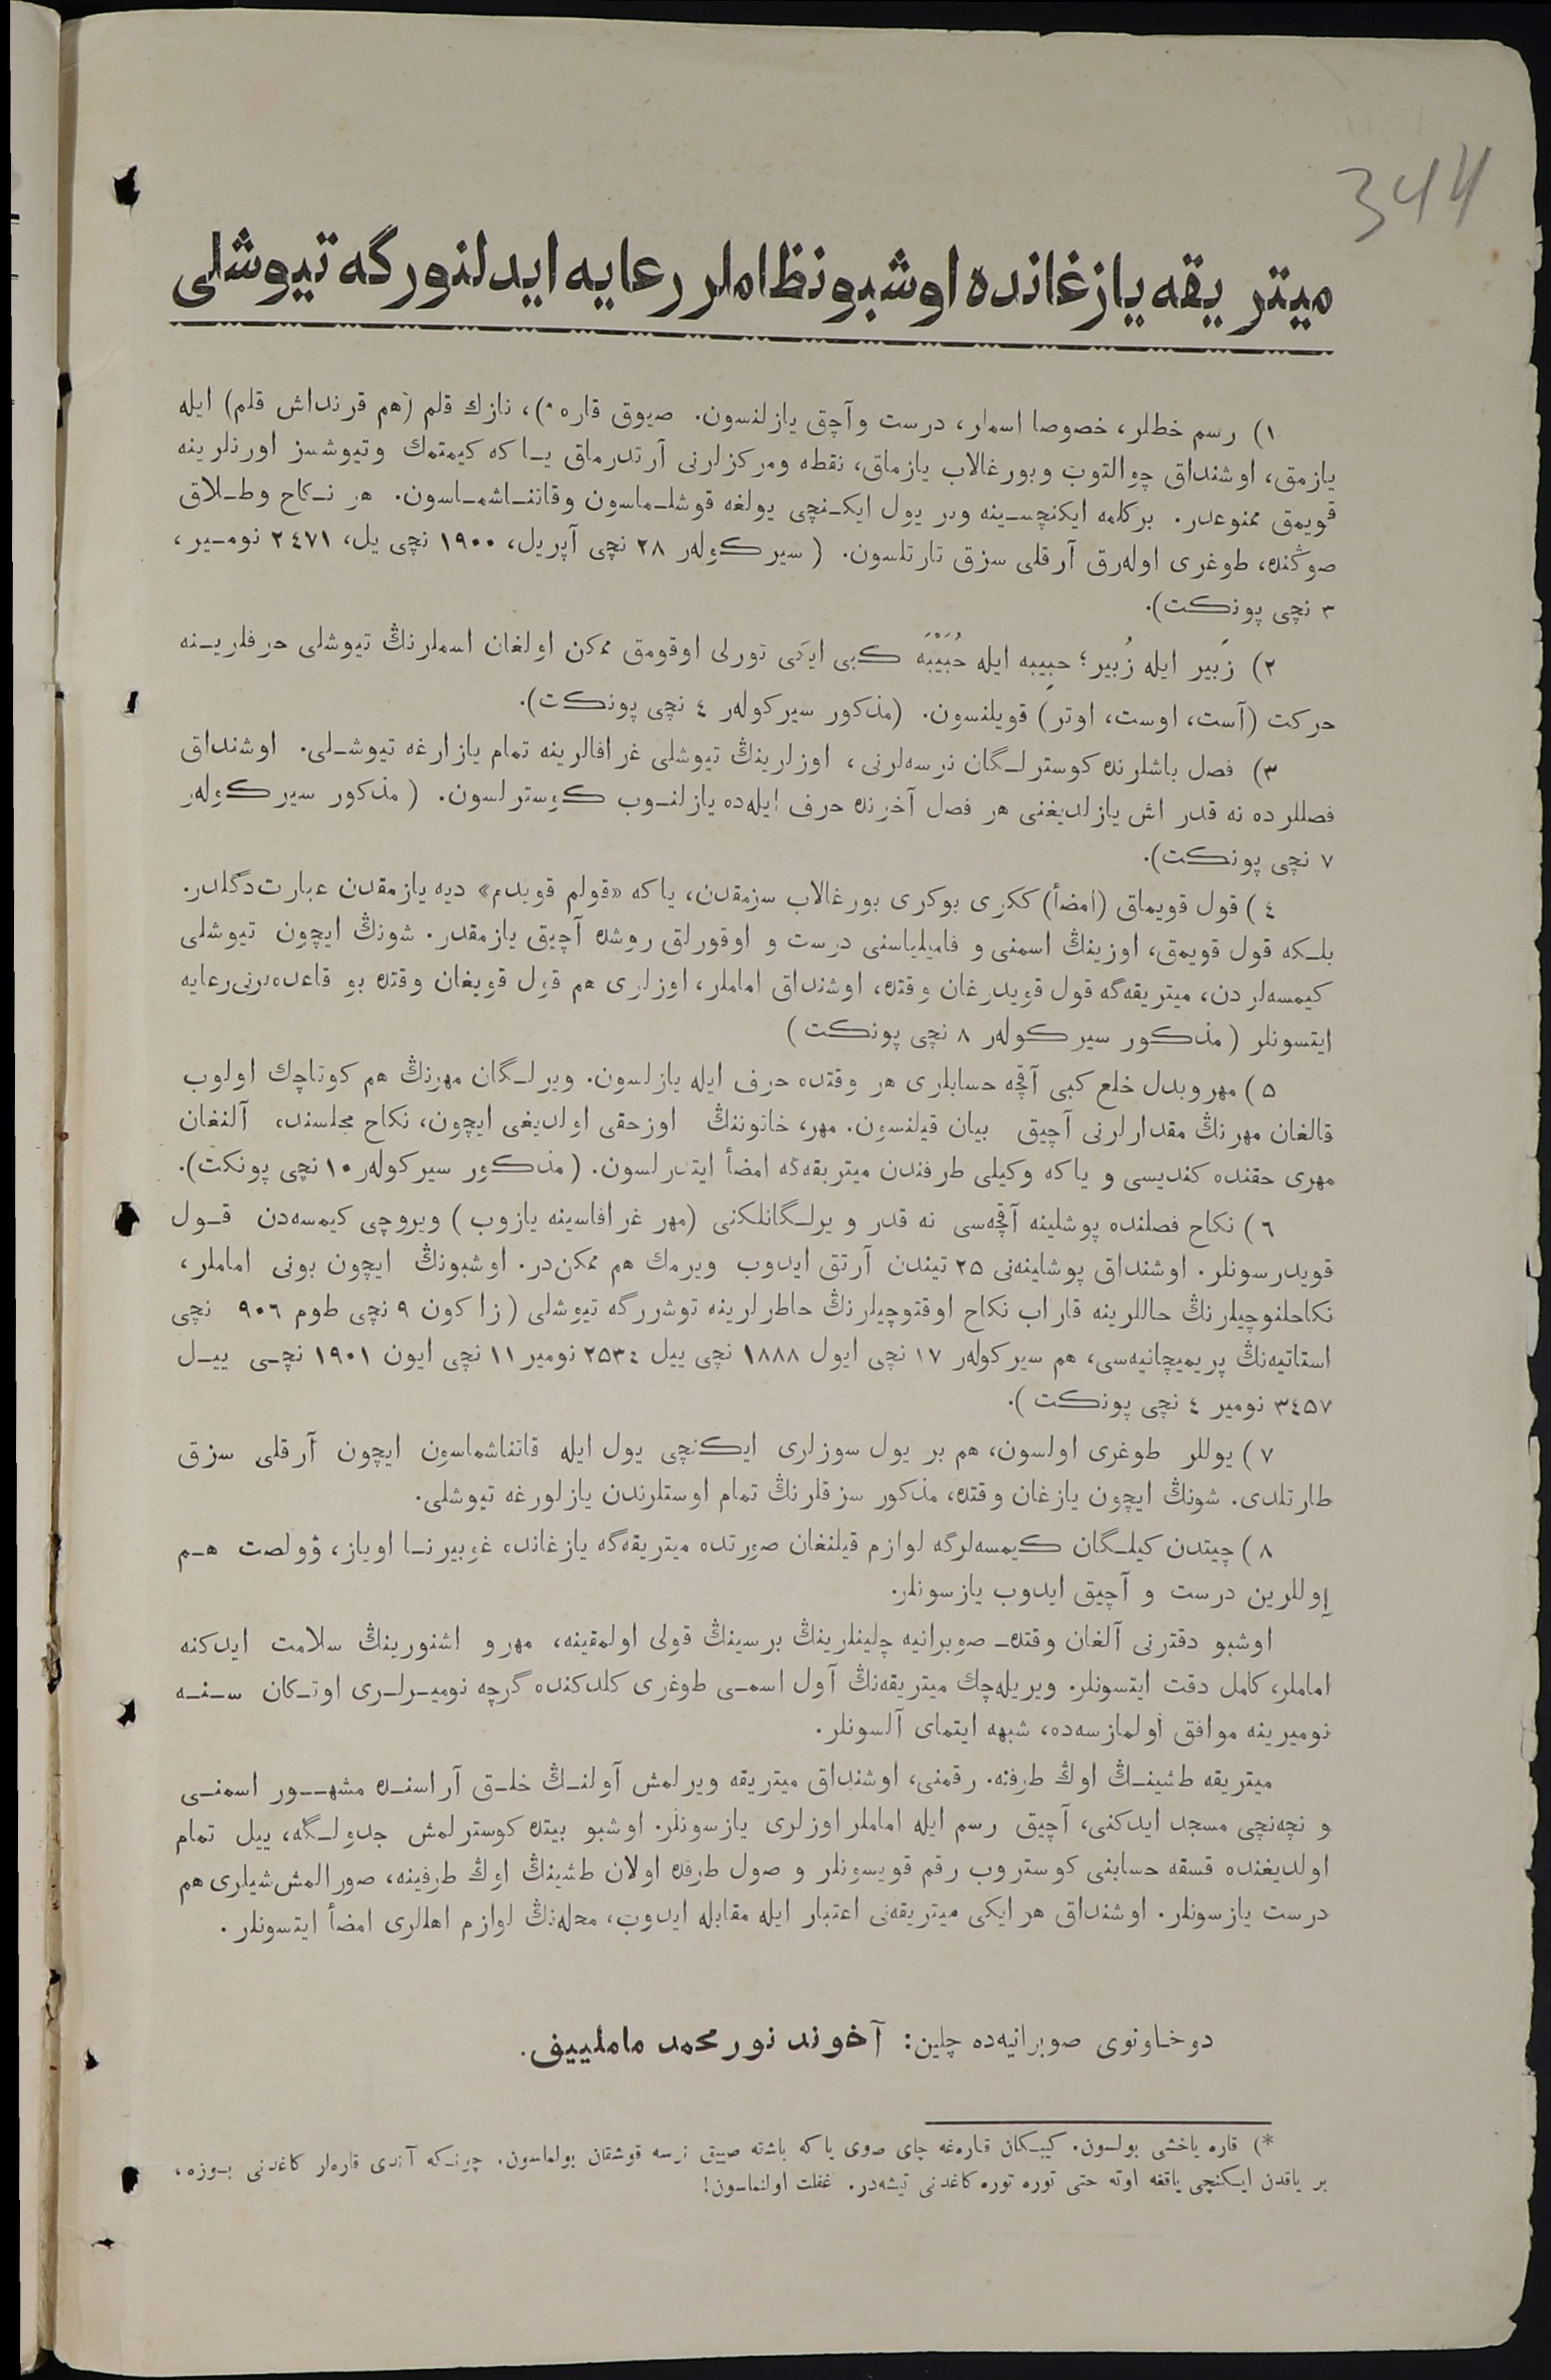 344
میتریقه یازغانده اوشبو نظاملر رعایه ایدلنورگه تیوشلی
١) رسم خطلر، خصوصا اسملر، درست وآچق یازلنسون. صیوق قاره *)، نازك قلم (هم قرنداش قلم) ایله
یازمق، اوشنداق چوالتوب وبورغالاب یازماق، نقطه ومرکزلرنی آرتدرماق یـا که کیمتمك وتیوشسز اورنلرینه
قویمق ممنوعدر. برکلمه ایکنچسـینه وبر یول ایکـنچی یولغه قوشلـماسون وقاتنـاشمـاسون. هر نـکاح وطـلاق
صوڭنده، طوغری اوله‌رق آرقلی سزق تارتلسون. (سیرکوله‌ر ٢٨ نچی آپریل، ١٩٠٠ نچی یل، ٢٤٧١ نومـیر،
٣ نچی پونکت).
٢) زَبیر ایله زُبیر؛ حبِیبه ایله حُبَیْبَه کبی ایکی تورلی اوقومق ممکن اولغان اسملرنڭ تیوشلی حرفلریـنه
حرکت (آست، اوست، اوتر) قویلنسون. (مذکور سیرکوله‌ر ٤ نچی پونکت).
٣) فصل باشلرنده کوسترلـگان نرسه‌لرنی، اوزلرینڭ تیوشلی غرافالرینه تمام یازارغه تیوشـلی. اوشنداق
فصللرده نه قدر اش یازلدیغنی هر فصل آخرنده حرف ایله‌ده یازلنـوب کوسترلسون. (مذکور سیرکوله‌ر
٧ نچی پونکت).
٤) قول قویماق (امضأ) ککری بوکری بورغالاب سزمقدن، یاکه «قولم قویدم» دیه یازمقدن عبارت‌دگلدر.
بلـکه قول قویمق، اوزینڭ اسمنی و فامیلیاسنی درست و اوقورلق روشده آچیق یازمقدر. شونڭ ایچون تیوشلی
کیمسه‌لردن، میتریقه‌گه قول قویدرغان وقتده، اوشنداق اماملر، اوزلری هم قول قویغان وقتده بو قاعده‌لرنی‌رعایه
ایتسونلر (مذکور سیرکوله‌ر ٨ نچی پونکت)
٥) مهروبدل خلع کبی آقچه حسابلری هر وقتده حرف ایله یازلسون. ویرلـگان مهرنڭ هم کوتاچك اولوب
قالغان مهرنڭ مقدارلرنی آچیق بیان قیلنسون. مهر، خاتوننڭ اوزحقی اولدیغی ایچون، نکاح مجلسنده آلنغان
مهری حقنده کندیسی و یاکه وکیلی طرفندن میتریقه‌گه امضأ ایتدرلسون. (مذکور سیرکوله‌ر ١٠ نچی پونکت).
٦) نکاح فصلنده پوشلینه آقچه‌سی نه قدر ویرلـگانلکنی (مهر غرافاسینه یازوب) ویروچی کیمسه‌دن قـول
قویدرسونلر. اوشنداق پوشلینه‌نی ٢٥ تیندن آرتق ایدوب ویرمك هم ممکن‌در. اوشبونڭ ایچون بونی اماملر،
نکاحلنوچیلرنڭ حاللرینه قاراب نکاح اوقتوچیلرنڭ خاطرلرینه توشررگه تیوشلی (زاکون ٩ نچی طوم ٩٠٦ نچی
استاتیه‌نڭ پریمیچانیه‌سی، هم سیرکوله‌ر ١٧ نچی ایول ١٨٨٨ نچی ییل ٢٥٣٤ نومیر ١١ نچی ایون ١٩٠١ نچـی ییـل
٣٤٥٧ نومیر ٤ نچی پونکت).
٧) یوللر طوغری اولسون، هم بر یول سوزلری ایکنچی یول ایله قاتناشماسون ایچون آرقلی سزق
طارتلدی. شونڭ ایچون یازغان وقتده، مذکور سزقلرنڭ تمام اوستلرندن یازلورغه تیوشلی.
٨) چیتدن کیلـگان کیمسه‌لرگه لوازم قیلنغان صورتده میتریقه‌گه یازغانده غوبیرنـا اویاز، ۋولصت هـم
آوللرین درست و آچیق ایدوب یازسونلر.
اوشبو دفترنی آلغان وقتده_ صوبرانیه چلینلرینڭ برسینڭ قولی اولمقینه، مهرو اشنورینڭ سلامت ایدکنه
اماملر، کامل دقت ایتسونلر. ویریله‌چك میتریقه‌نڭ آول اسمـی طوغری کلدکنده گرچه نومیـرلـری اوتـکان سـنـه
نومیرینه موافق اولمازسه‌ده، شبهه ایتمای آلسونلر.
میتریقه طشینـڭ اوڭ طرفنه. رقمنی، اوشنداق میتریقه ویرلمش آولنـڭ خلـق آراسنـده مشهــور اسمنـی
و نچه‌نچی مسجد ایدکنی، آچیق رسم ایله اماملر اوزلری یازسونلر. اوشبو بیتده کوسترلمش جدولـگه، ییل تمام
اولدیغنده قسقه حسابنی کوستروب رقم قویسونلر و صول طرفده اولان طشینڭ اوڭ طرفینه، صورالمش‌شیلری هم
درست یازسونلر. اوشنداق هر ایکی میتریقه‌نی اعتبار ایله مقابله ایدوب، محله‌نڭ لوازم اهللری امضأ ایتسونلر.
دوخاونوی صوبرانیه‌ده چلین: آخوند نورمحمد ماملییف.
*) قاره یاخشی بولسون. کیبـکان قاره‌غه چای صوی یاکه باشته صییق نرسه قوشقان بولماسون. چونـکه آندی قاره‌لر کاغدنی بـوزه،
بر یاقدن ایـکنچی یاقغه اوته حتی توره توره کاغدنی تیشه‌در. غفلت اولنماسون!